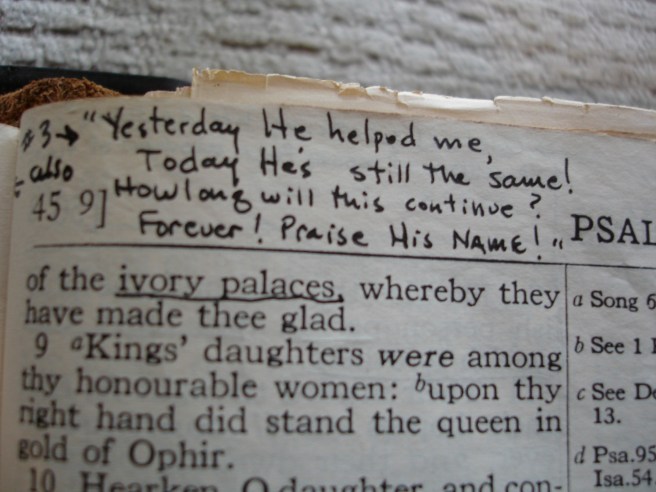 #3→ "Yesterday He helped me,
also Today He's still the same!
45 9] How long will this continue?
Forever! Praise His Name!"
PSAL
of the ivory palaces, whereby they
have made thee glad.
9 aKings' daughters were among
thy honourable women: bupon thy
right hand did stand the queen in
gold of Ophir.
10 Hearken, O daughter, and con-
a Song 6
b See 1
c See De
13.
d Psa.95
Isa.54.